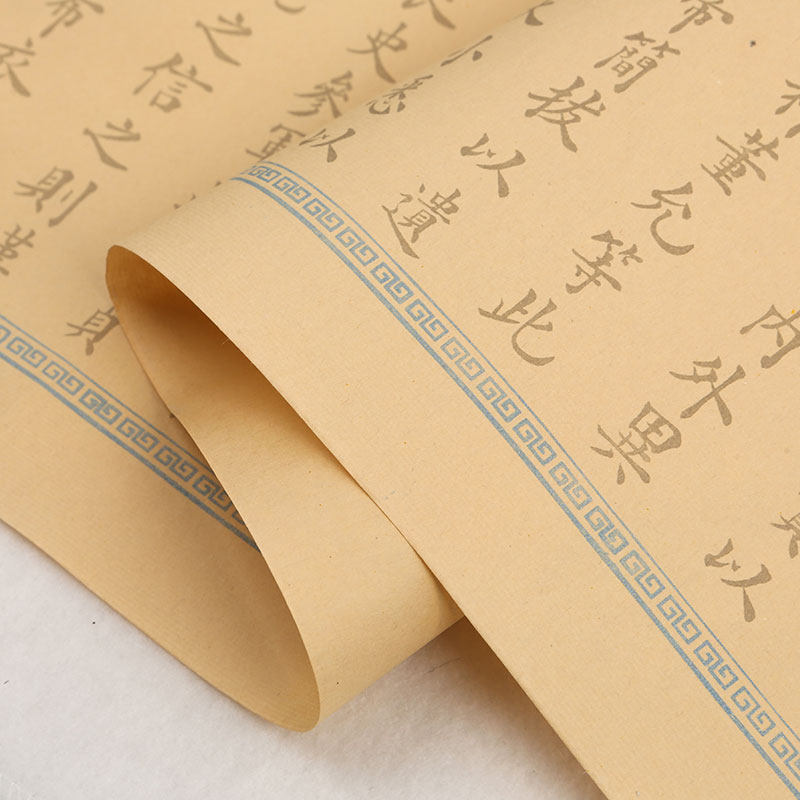 以
內外異
董允等此
帝簡拔以遺
小悉以
史參軍 貞
之信之則漢
布衣